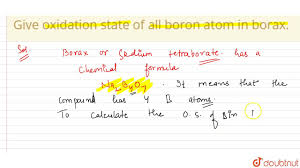 Give oxidation state of all boron atom in borax.
Sol. Borax or Sodium tetraborate. has a
Chemical formula
Na2B4O7. It means that the
compound has 4 B atoms.
To calculate the O.S. of B in
doubtnut